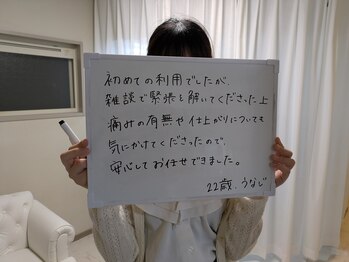 初めての利用でしたが、
雑談で緊張を解いてくださった上
痛みの有無や仕上がりについても
気にかけてくださったので、
安心してお任せできました。
22歳、うなじ